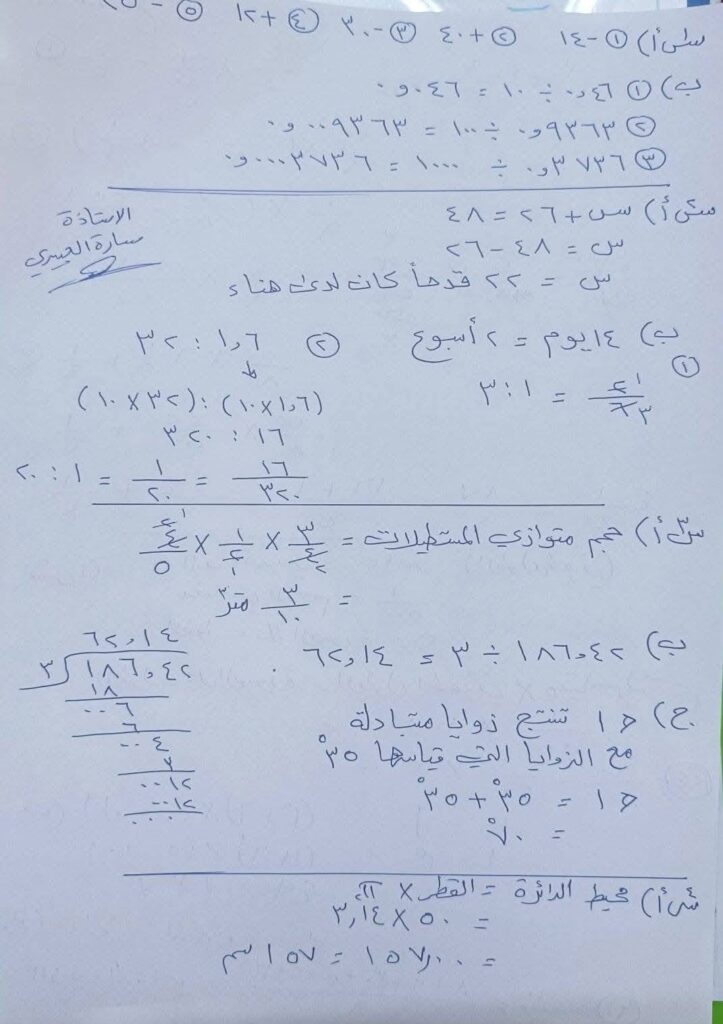 س١ أ) ① -١٤ ② +٤٠ ③ -٣٠ ④ +١٢ ⑤
ب) ① ٠,٤٦ ÷ ١٠ = ٠,٠٤٦
② ٠,٩٣٦٣ ÷ ١٠٠ = ٠,٠٠٩٣٦٣
③ ٠,٣٧٣٦ ÷ ١٠٠٠ = ٠,٠٠٠٣٧٣٦
س٢ أ) س + ٢٦ = ٤٨
س = ٤٨ - ٢٦
س = ٢٢ قدحاً كان لدى هناء
الاستاذة
سارة الجبيري
ب) ١٤ يوم = ٢ أسبوع
① ٢/٦ = ١ : ٣
② ١,٦ : ٣٢
(١,٦ × ١٠) : (٣٢ × ١٠)
١٦ : ٣٢٠
١٦/٣٢٠ = ١/٢٠ = ١ : ٢٠
س٣ أ) حجم متوازي المستطيلات = ٣/٤ × ١/٢ × ٤/٥
= ٣/١٠ متر٣
ب) ١٨٦,٤٢ ÷ ٣ = ٦٢,١٤
٦٢,١٤
٣ ١٨٦,٤٢
١٨
٠٠٦
٦
٠٠٤
٣
٠٠١٢
٠٠١٢
٠٠٠٠
ج) > ١ تنتج زوايا متبادلة
مع الزوايا التي قياسها ٣٥°
> ١ = ٣٥° + ٣٥°
= ٧٠°
س٤ أ) محيط الدائرة = القطر × π
= ٥٠ × ٣,١٤
= ١٥٧,٠٠ = ١٥٧ سم